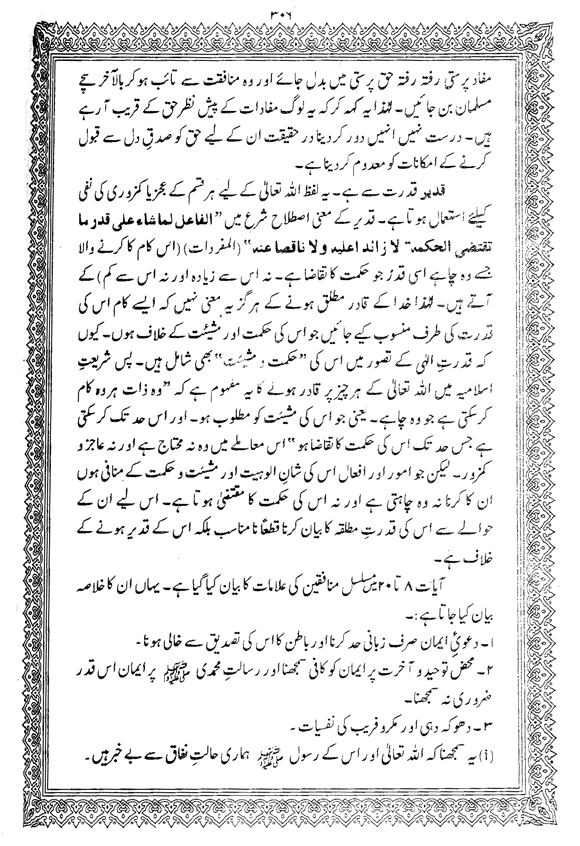 ۳۰۶
مفاد پرستی رفتہ رفتہ حق پرستی میں بدل جائے اور وہ منافقت سے تائب ہو کر بالآخر سچے
مسلمان بن جائیں۔ لہٰذا یہ کہہ کر کہ یہ لوگ مفادات کے پیش نظر حق کے قریب آ رہے
ہیں۔ درست نہیں انہیں دور کر دینا در حقیقت ان کے لیے حق کو صدقِ دل سے قبول
کرنے کے امکانات کو معدوم کر دینا ہے۔
قدیر قدرت سے ہے۔ یہ لفظ اللہ تعالیٰ کے لیے ہر قسم کے عجز یا کمزوری کی نفی
کیلئے استعمال ہوتا ہے۔ قدیر کے معنی اصطلاح شرع میں "الفاعل لما شاء على قدر ما
تقتضى الحكمة لا زائد اعليه ولا ناقصا عنه" (المفردات) (اس کام کا کرنے والا
جسے وہ چاہے اسی قدر جو حکمت کا تقاضا ہے۔ نہ اس سے زیادہ اور نہ اس سے کم) کے
آتے ہیں۔ لہٰذا خدا کے قادر مطلق ہونے کے ہرگز یہ معنی نہیں کہ ایسے کام اس کی
قدرت کی طرف منسوب کیے جائیں جو اس کی حکمت اور مشیئت کے خلاف ہوں۔ کیوں
کہ قدرتِ الٰہی کے تصور میں اس کی "حکمت و مشیئت" بھی شامل ہیں۔ پس شریعتِ
اسلامیہ میں اللہ تعالیٰ کے ہر چیز پر قادر ہونے کا یہ مفہوم ہے کہ "وہ ذات ہر وہ کام
کر سکتی ہے جو وہ چاہے۔ یعنی جو اس کی مشیئت کو مطلوب ہو۔ اور اس حد تک کر سکتی
ہے جس حد تک اس کی حکمت کا تقاضا ہو" اس معاملے میں وہ نہ محتاج ہے اور نہ عاجز و
کمزور۔ لیکن جو امور اور افعال اس کی شانِ الوہیت اور مشیئت و حکمت کے منافی ہوں
ان کا کرنا نہ وہ چاہتی ہے اور نہ اس کی حکمت کا مقتضی ہوتا ہے۔ اس لیے ان کے
حوالے سے اس کی قدرتِ مطلقہ کا بیان کرنا قطعًا نا مناسب بلکہ اس کے قدیر ہونے کے
خلاف ہے۔
آیات ۸ تا ۲۰ میں مسلسل منافقین کی علامات کا بیان کیا گیا ہے۔ یہاں ان کا خلاصہ
بیان کیا جاتا ہے:۔
۱۔ دعویٔ ایمان صرف زبانی حد کرنا اور باطن کا اس کی تصدیق سے خالی ہونا۔
۲۔ محض توحید و آخرت پر ایمان کو کافی سمجھنا اور رسالتِ محمدی ﷺ پر ایمان اس قدر
ضروری نہ سمجھنا۔
۳۔ دھوکہ دہی اور مکر و فریب کی نفسیات۔
(i) یہ سمجھنا کہ اللہ تعالیٰ اور اس کے رسول ﷺ ہماری حالتِ نفاق سے بے خبر ہیں۔